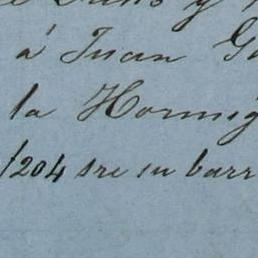 y
á Juan
la Hormig
1204 sre su barr